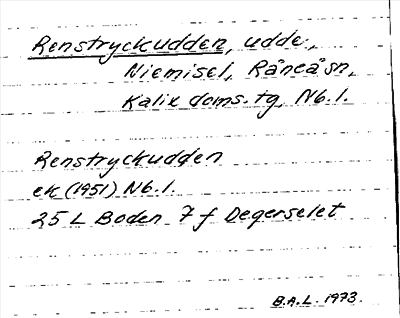 Renstryckudden, udde,
Niemisel, Råneå sn,
Kalix doms. tg, Nb. l.
Renstryckudden
ek (1951) Nb. l.
25 L Boden 7 f Degerselet
B.A.L. 1973.